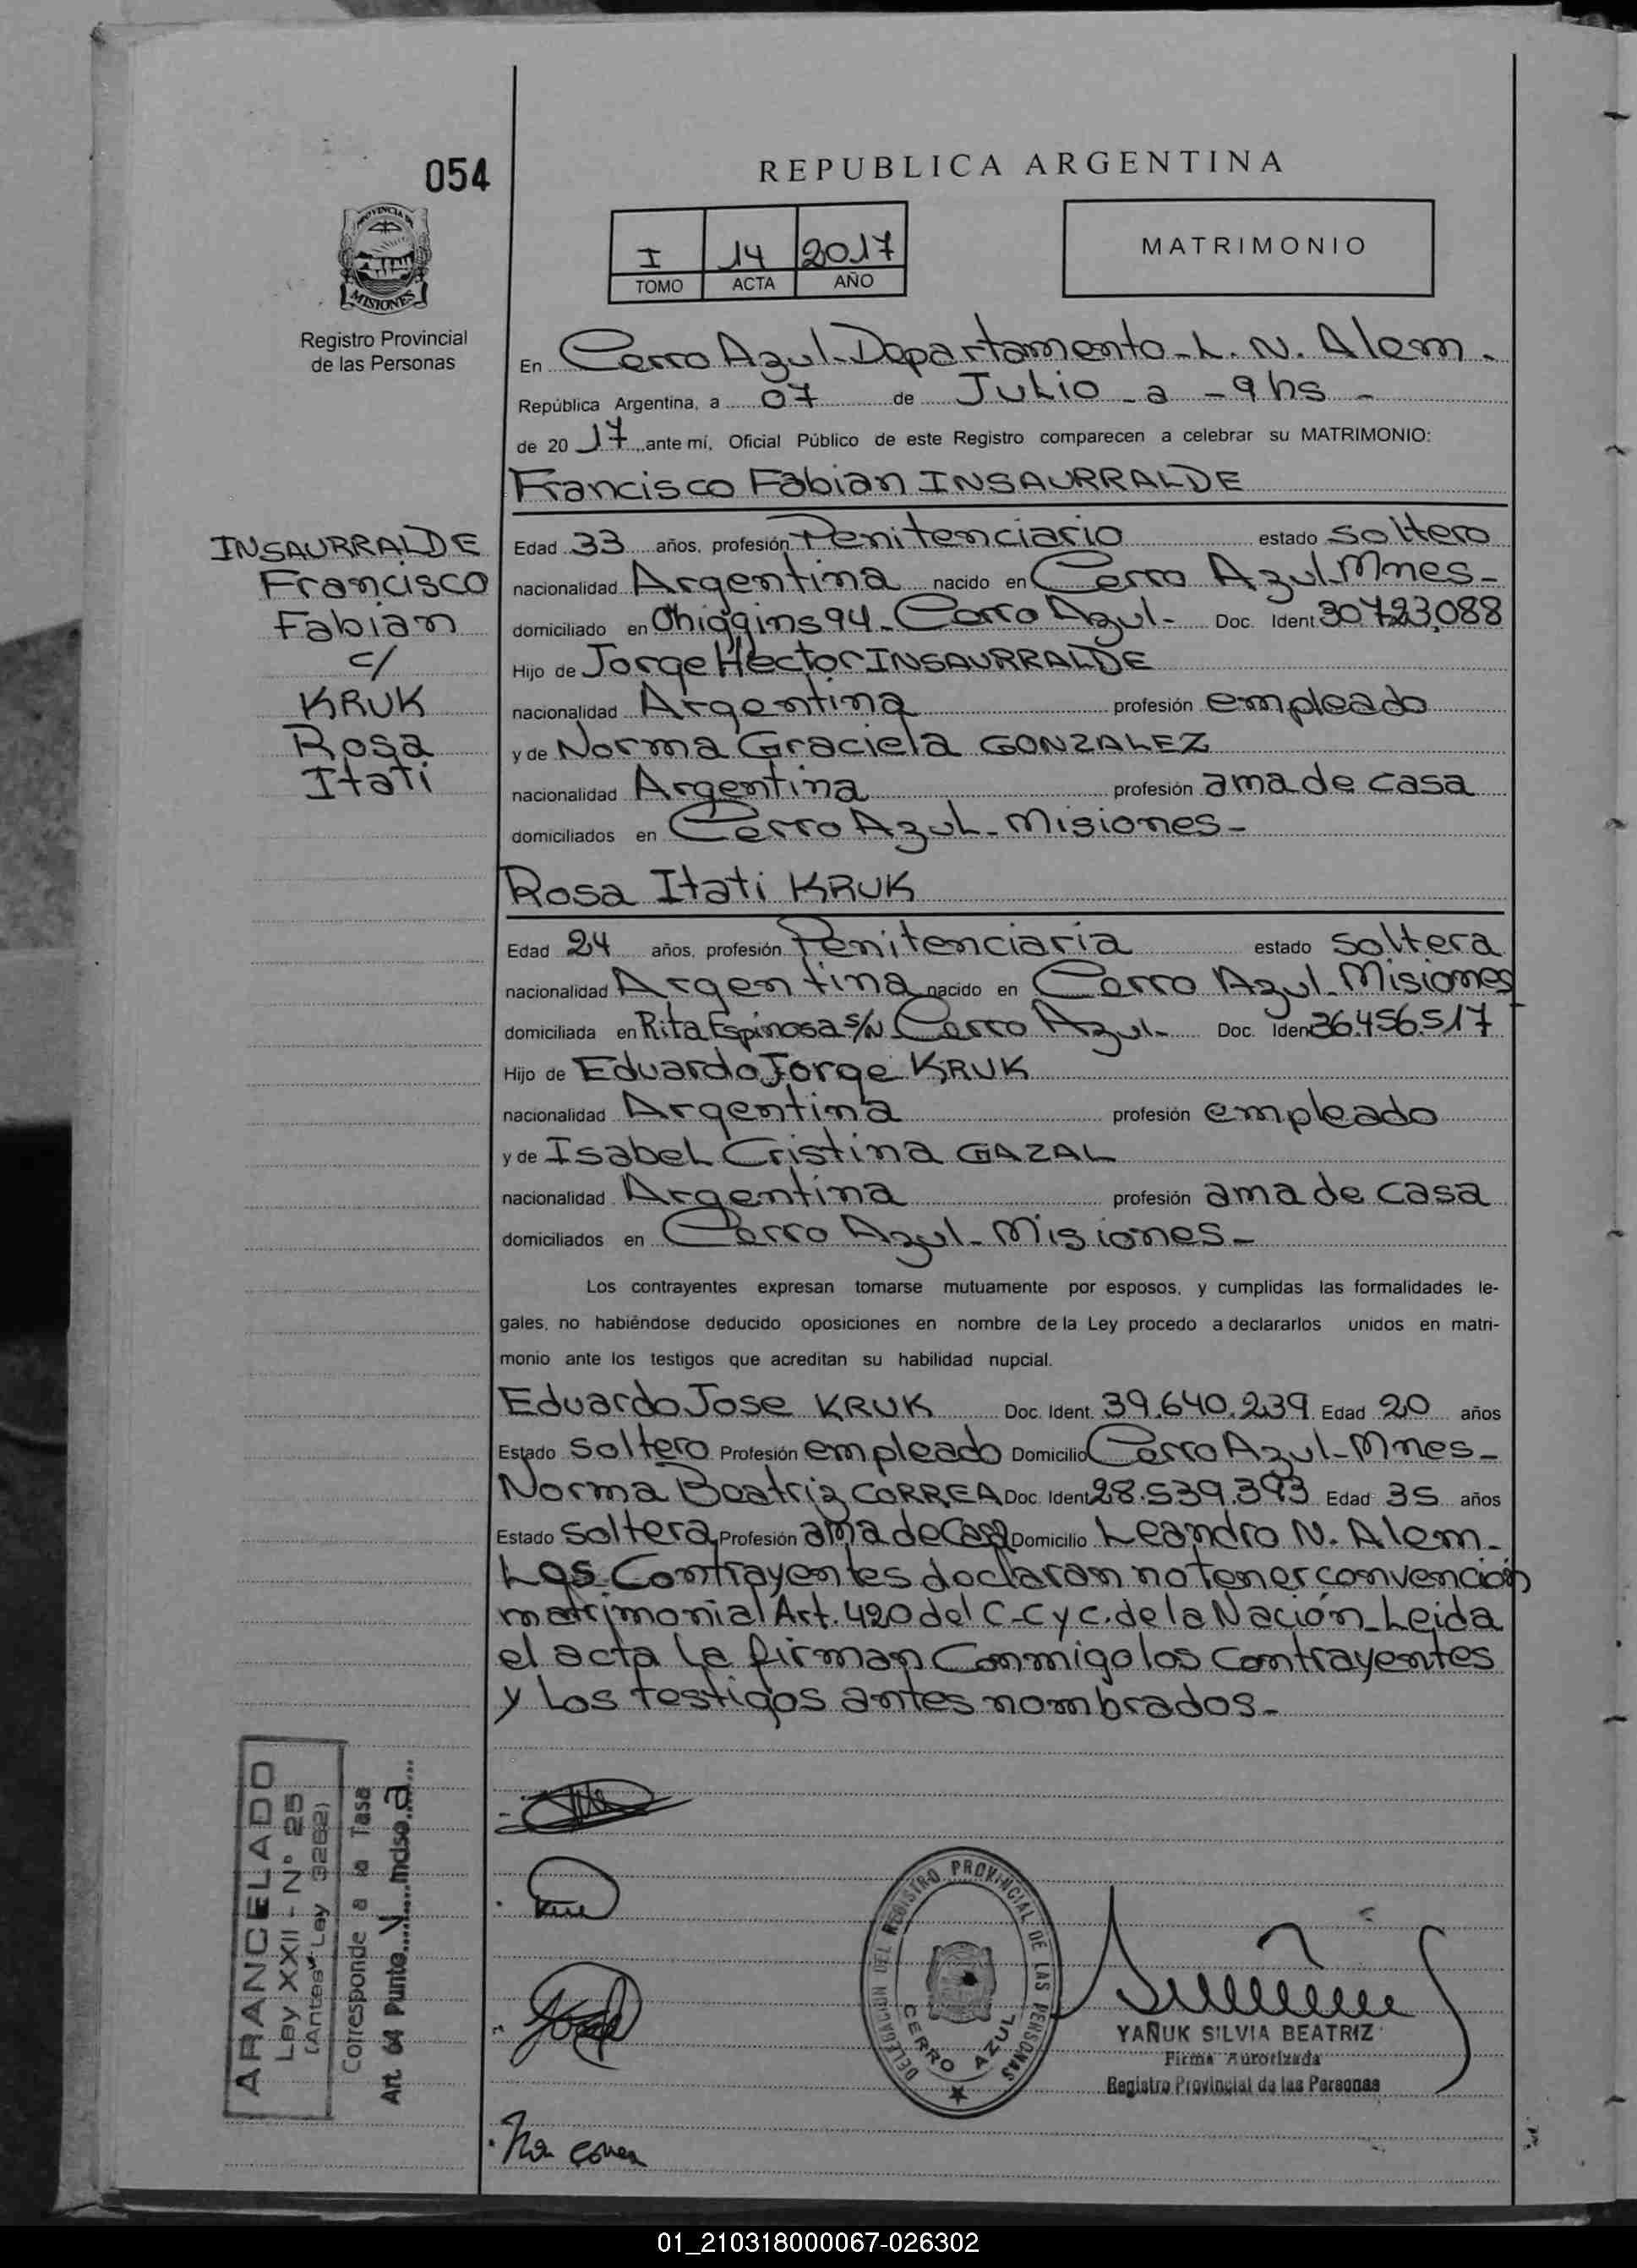 054
REPUBLICA ARGENTINA
PROVINCIA DE
MISIONES
Registro Provincial
de las Personas
I 14 2017
TOMO ACTA AÑO
MATRIMONIO
En Cerro Azul-Departamento-L. N. Alem.
República Argentina, a 07 de Julio - a - 9 hs -
de 20 17 ante mí, Oficial Público de este Registro comparecen a celebrar su MATRIMONIO:
Francisco Fabian INSAURRALDE
INSAURRALDE
Francisco
Fabian
c/
KRUK
Rosa
Itati
Edad 33 años, profesión Penitenciario estado soltero
nacionalidad Argentina nacido en Cerro Azul-Mnes-
domiciliado en Ohiggins 94-Cerro Azul- Doc. Ident 30.723.088
Hijo de Jorge Hector INSAURRALDE
nacionalidad Argentina profesión empleado
y de Norma Graciela GONZALEZ
nacionalidad Argentina profesión ama de casa
domiciliados en Cerro Azul-Misiones-
Rosa Itati KRUK
Edad 24 años, profesión Penitenciaria estado soltera
nacionalidad Argentina nacido en Cerro Azul-Misiones
domiciliada en Rita Espinosa s/N Cerro Azul- Doc. Iden 36.456.517
Hijo de Eduardo Jorge KRUK
nacionalidad Argentina profesión empleado
y de Isabel Cristina GAZAL
nacionalidad Argentina profesión ama de casa
domiciliados en Cerro Azul-Misiones-
Los contrayentes expresan tomarse mutuamente por esposos, y cumplidas las formalidades le-
gales, no habiéndose deducido oposiciones en nombre de la Ley procedo a declararlos unidos en matri-
monio ante los testigos que acreditan su habilidad nupcial.
Eduardo Jose KRUK Doc. Ident. 39.640.239 Edad 20 años
Estado soltero Profesión empleado Domicilio Cerro Azul-Mnes-
Norma Beatriz CORREA Doc. Ident 28.539.393 Edad 35 años
Estado soltera Profesión ama de Casa Domicilio Leandro N. Alem-
Los Contrayentes declaran no tener convención
matrimonial Art. 420 del C-C y C. de la Nación-Leida
el acta la firman Conmigo los Contrayentes
y los testigos antes nombrados-
ARANCELADO
Ley XXII - N° 25
(Antes Ley 3262)
Corresponde a la Tasa
Art. 64 Punto V Inciso a
DELEGACION DEL REGISTRO PROVINCIAL DE LAS PERSONAS
CERRO AZUL
YAÑUK SILVIA BEATRIZ
Firma Autorizada
Registro Provincial de las Personas
01_210318000067-026302